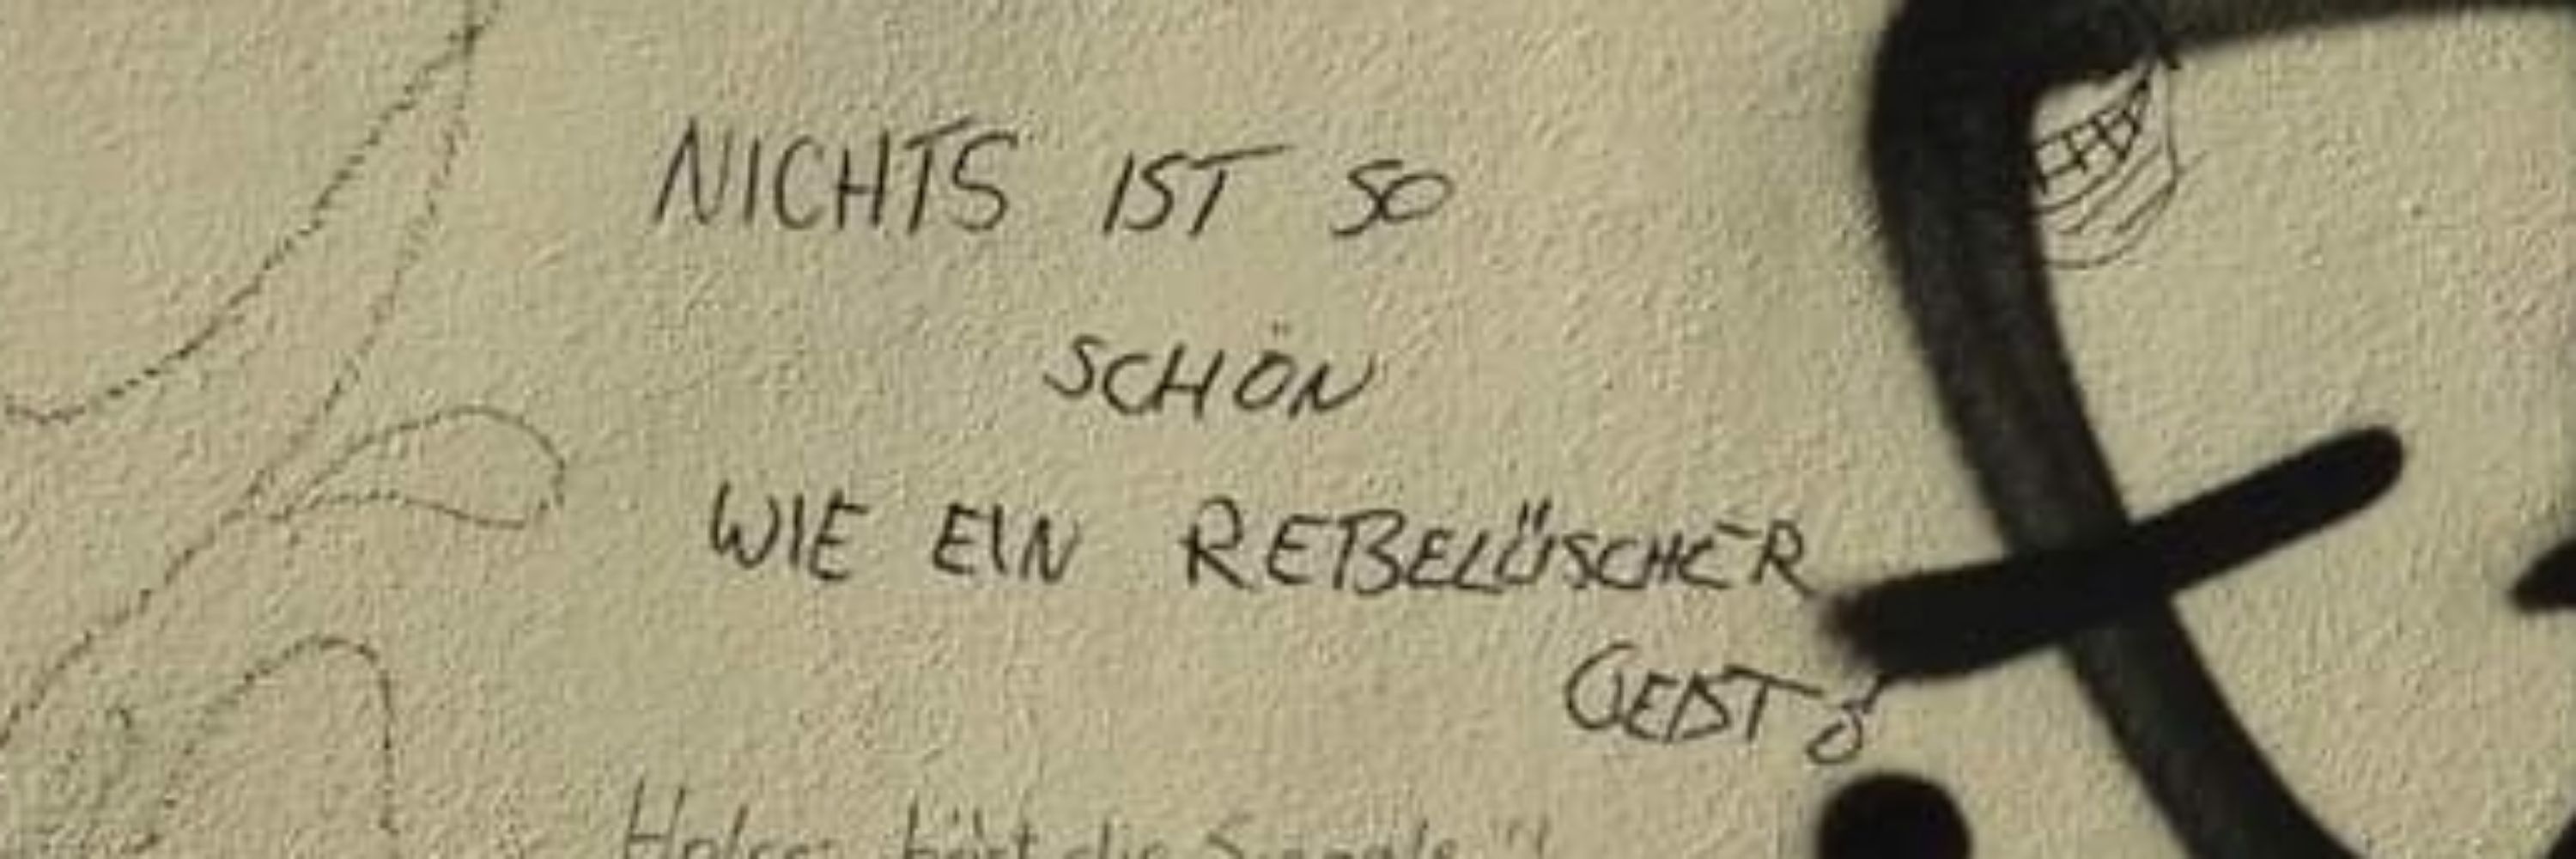 NICHTS IST SO
SCHÖN
WIE EIN REBELÜSCHER
GEIST!
die